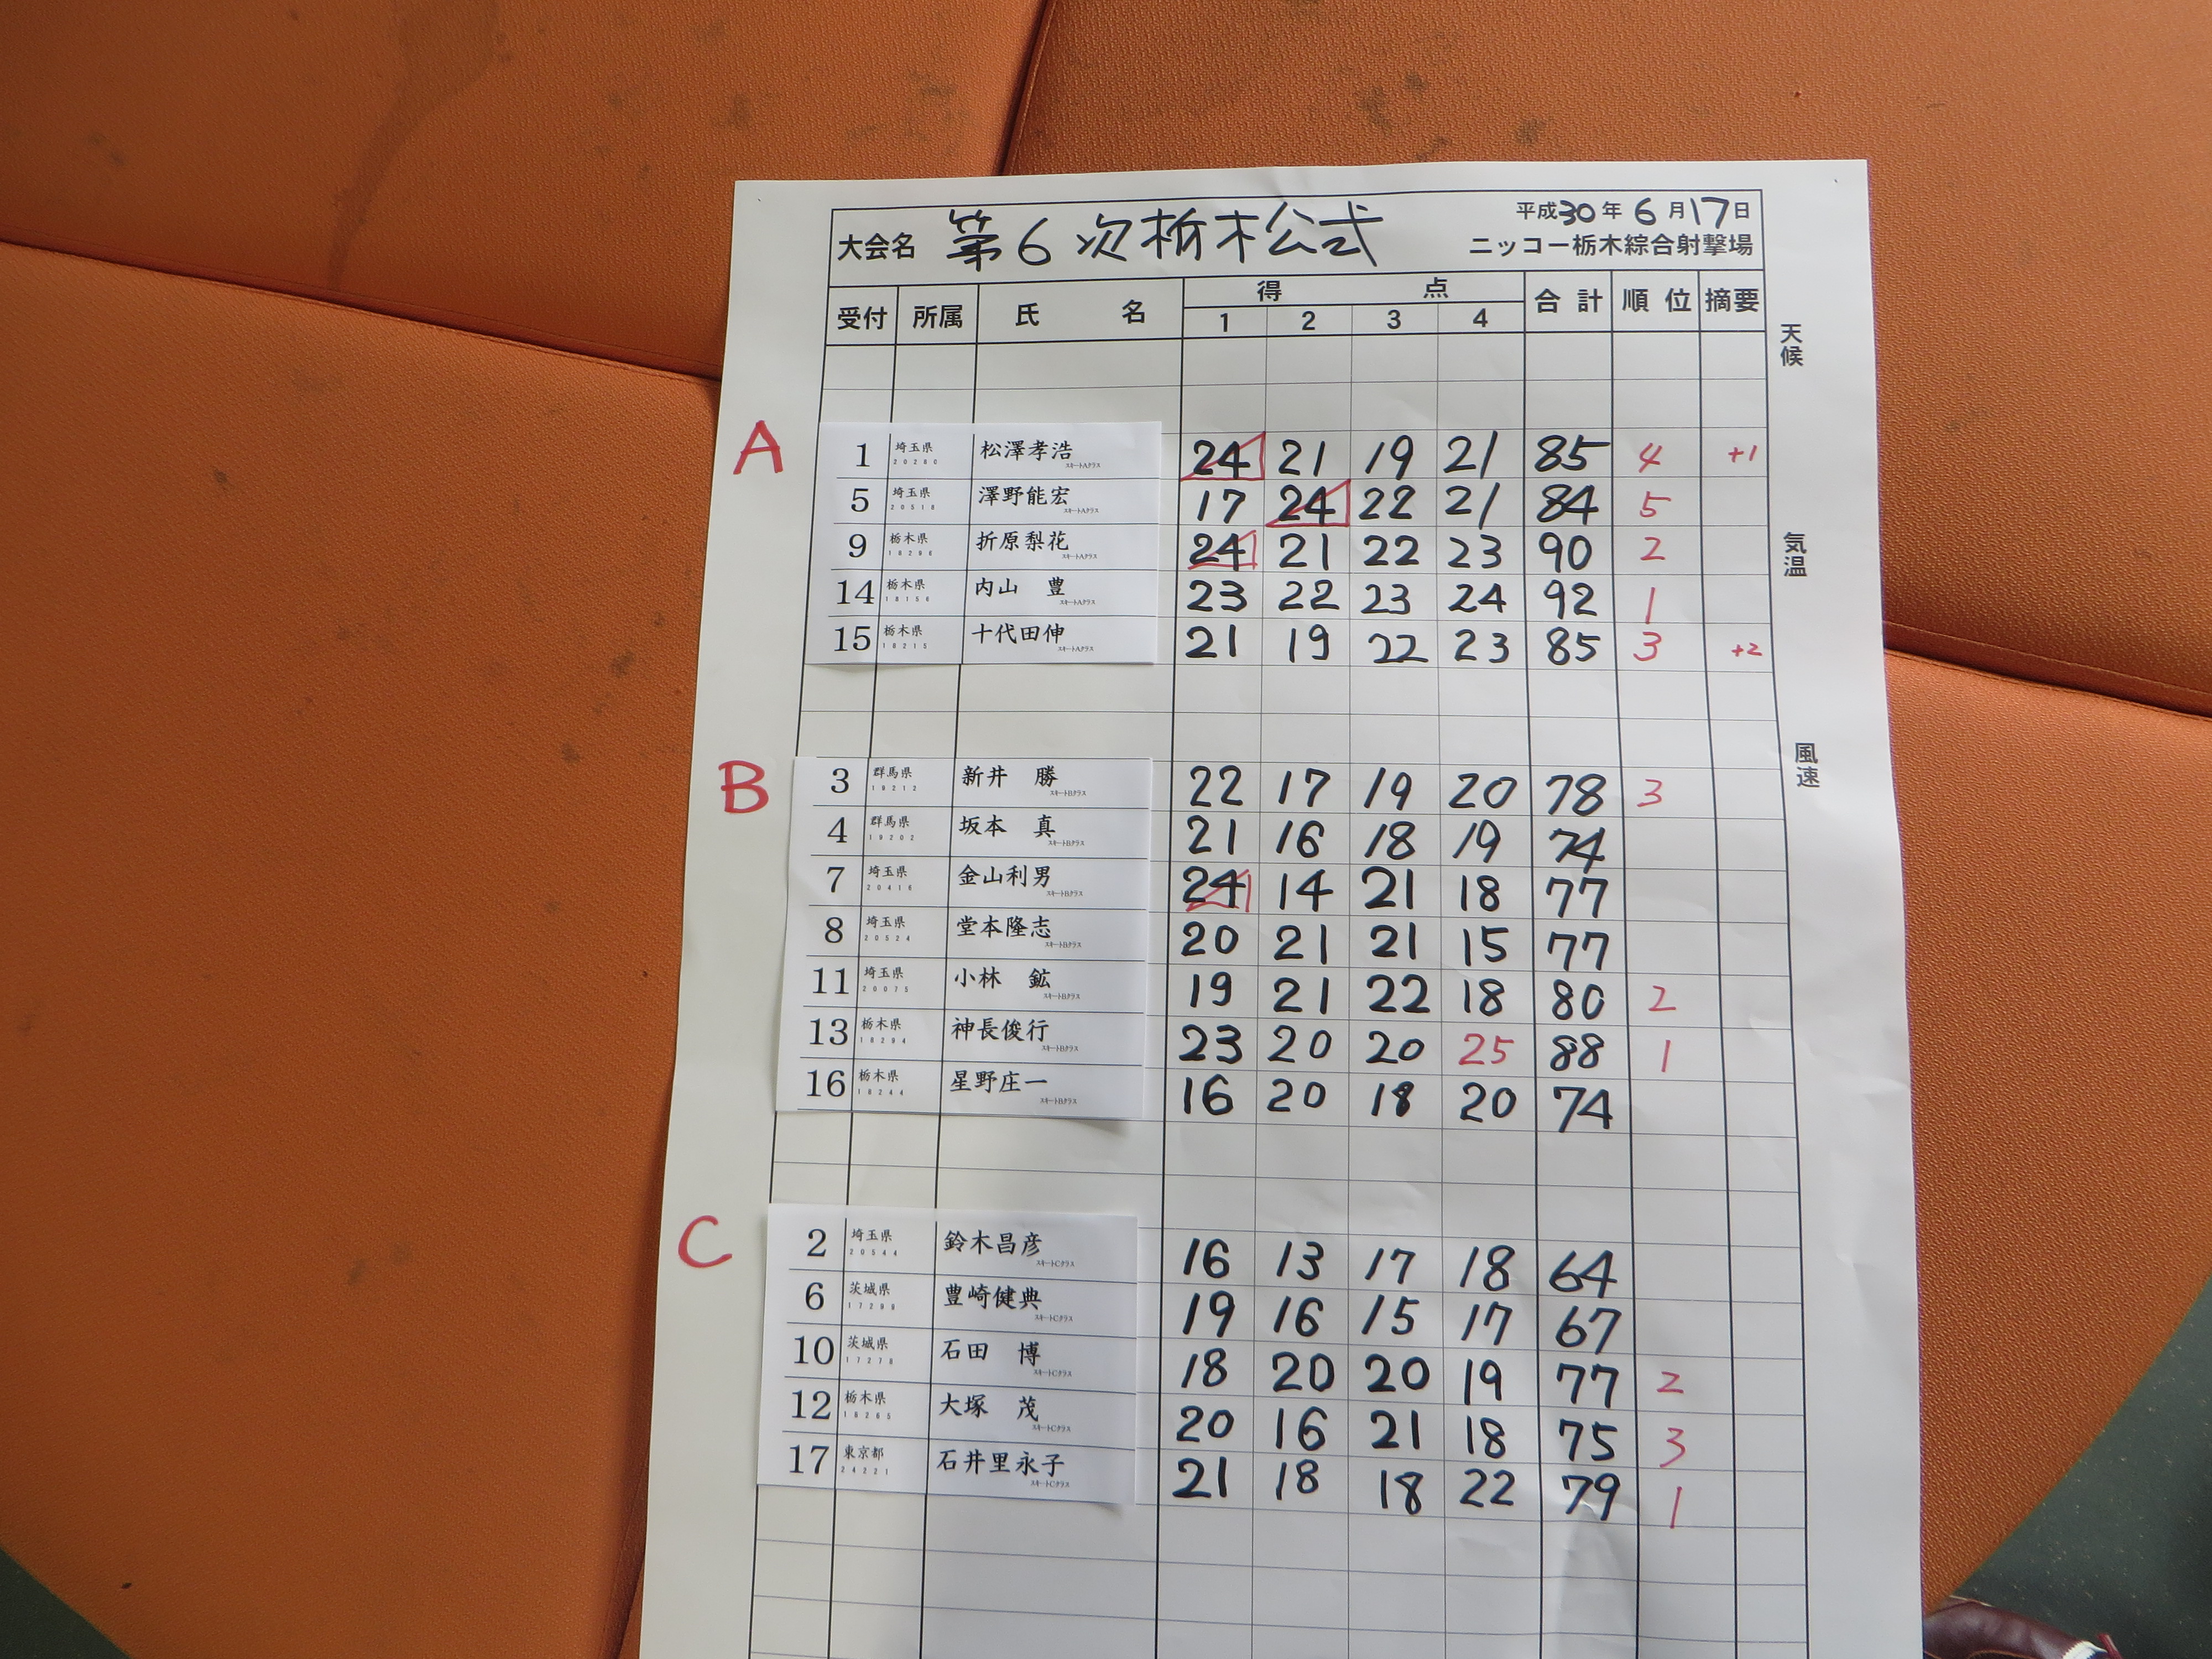 大会名 第6次栃木公式 平成30年6月17日
ニッコー栃木綜合射撃場
受付 所属 氏名 得点 合計 順位 摘要
1 2 3 4
天候
気温
風速
A
1 埼玉県 松澤孝浩 24 21 19 21 85 4 +1
20280 スキートAクラス
5 埼玉県 澤野能宏 17 24 22 21 84 5
20518 スキートAクラス
9 栃木県 折原梨花 24 21 22 23 90 2
18296 スキートAクラス
14 栃木県 内山 豊 23 22 23 24 92 1
18156 スキートAクラス
15 栃木県 十代田伸 21 19 22 23 85 3 +2
18215 スキートAクラス
B
3 群馬県 新井 勝 22 17 19 20 78 3
19212 スキートBクラス
4 群馬県 坂本 真 21 16 18 19 74
19202 スキートBクラス
7 埼玉県 金山利男 24 14 21 18 77
20416 スキートBクラス
8 埼玉県 堂本隆志 20 21 21 15 77
20524 スキートBクラス
11 埼玉県 小林 鉱 19 21 22 18 80 2
20075 スキートBクラス
13 栃木県 神長俊行 23 20 20 25 88 1
18294 スキートBクラス
16 栃木県 星野庄一 16 20 18 20 74
18244 スキートBクラス
C
2 埼玉県 鈴木昌彦 16 13 17 18 64
20544 スキートCクラス
6 茨城県 豊崎健典 19 16 15 17 67
スキートCクラス
10 茨城県 石田 博 18 20 20 19 77 2
17278 スキートCクラス
12 栃木県 大塚 茂 20 16 21 18 75 3
スキートCクラス
17 東京都 石井里永子 21 18 18 22 79 1
24221 スキートCクラス